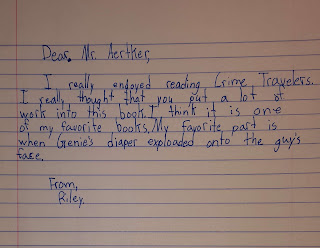 Dear Mr. Aertker,
I really enjoyed reading Crime Travelers.
I really thought that you put a lot of
work into this book. I think it is one
of my favorite books. My favorite part is
when Genie's diaper exploaded onto the guy's
face.
From,
Riley